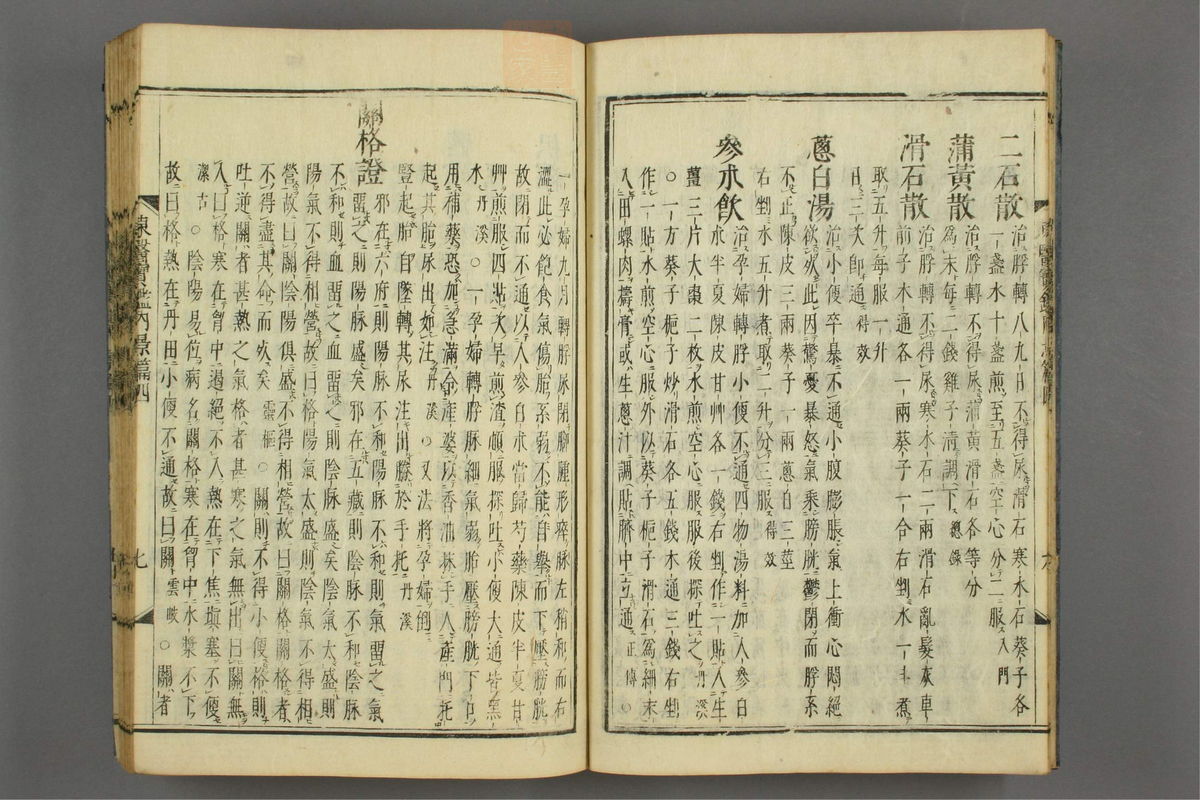 二石散 治脬轉八九日不得尿滑石寒水石葵子各
一盞水十盞煎至五盞空心分二服入門
蒲黃散 治脬轉不得尿蒲黃滑石各等分
爲末每二錢雞子清調下總錄
滑石散 治脬轉不得尿寒水石二兩滑石亂髮灰車
前子木通各一兩葵子一合右剉水一斗煮
取五升每服一升
日三次卽通得效
蔥白湯 治小便卒暴不通小腹膨脹氣上衝心悶絕
欲死此因驚憂暴怒氣乘膀胱鬱閉而脬系
不正陳皮三兩葵子一兩蔥白三莖
右剉水五升煮取二升分三服得效
參朮飮 治孕婦轉脬小便不通四物湯料加人參白
朮半夏陳皮甘艸各一錢右剉作一貼入生
薑三片大棗二枚水煎空心服服後探吐之丹溪
○一方葵子梔子炒滑石各五錢木通三錢右剉
作一貼水煎空心服外以葵子梔子滑石爲細末
入田螺肉擣膏或生蔥汁調貼臍中立通正傳○
一孕婦九月轉脬尿閉脚腫形瘁脉左稍和而右
澁此必飽食氣傷胎系弱不能自擧而下壓膀胱
故閉而不通以人參白朮當歸芍藥陳皮半夏甘
艸煎服四貼次早煎渣頓服探吐小便大通皆黑
水丹溪○一孕婦轉脬脉細氣弱胎壓膀胱下口
用補藥恐加急滿令產婆以香油抹手入產門托
起其胎尿出如注丹溪○又法將孕婦倒
竪起胎自墜轉其尿注出勝於手托丹溪
關格證 邪在六府則陽脉不和陽脉不和則氣留之氣
留之則陽脉盛矣邪在五藏則陰脉不和陰脉
不和則血留之血留之則陰脉盛矣陰氣太盛則
陽氣不得相營故曰格陽氣太盛則陰氣不得相
營故曰關陰陽俱盛不得相營故曰關格關格者
不得盡其命而死矣靈樞○關則不得小便格則
吐逆關者甚熱之氣格者甚寒之氣無出曰關無
入曰格寒在胷中遏絕不入熱在下焦塡塞不便
潔古○陰陽易位病名關格寒在胷中水漿不下
故曰格熱在丹田小便不通故曰關雲岐○關者
東醫寶鑑內景篇四
七